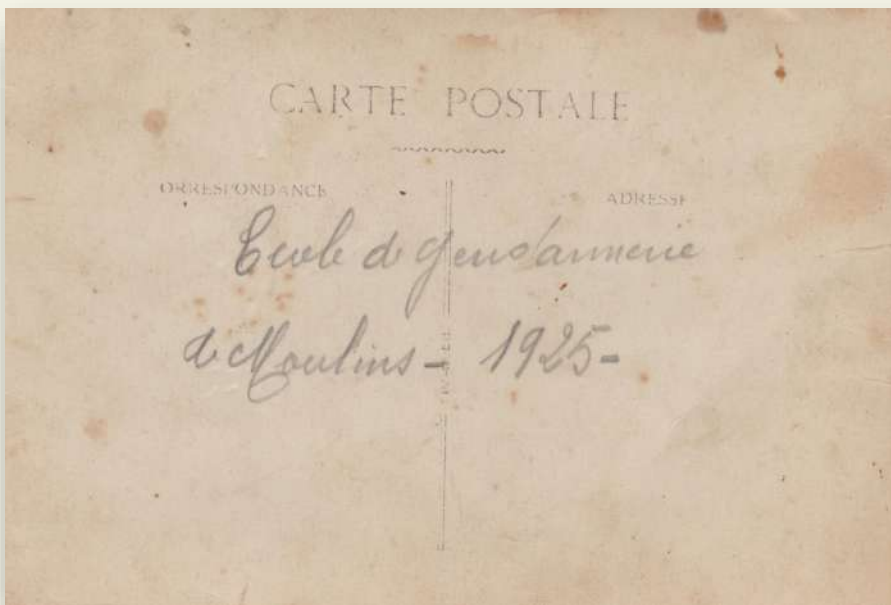 CARTE POSTALE
ORRESPONDANCE
ADRESSE
Ecole de Gendarmerie
de Moulins - 1925 -